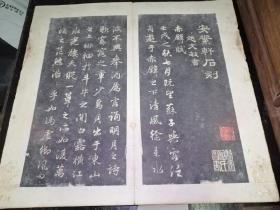 安素軒石刻
趙文敏書
赤壁賦
壬戌之秋七月既望蘇子與客泛
舟遊于赤壁之下清風徐來水
波不興舉酒屬客誦明月之詩
歌窈窕之章少焉月出于東山
之上徘徊於斗牛之間白露橫江
水光接天縱一葦之所如凌萬
頃之茫然浩浩乎如馮虛御風而